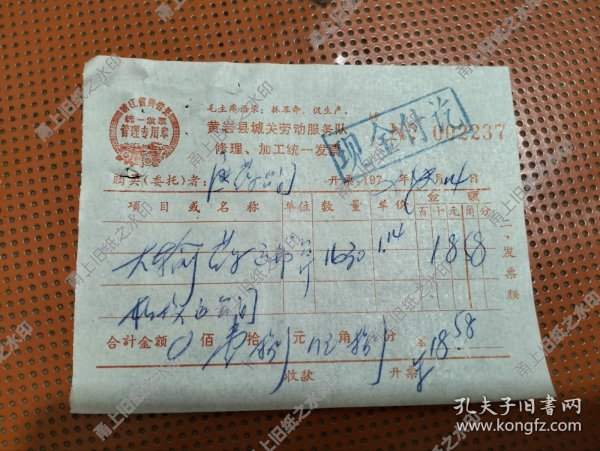 浙江省黄岩县
统一发票
管理专用章
毛主席语录：抓革命，促生产。
黄岩县城关劳动服务队
修理、加工统一发票
№ 002237
现金付讫
购买（委托）者： 开票197 年 月14日
项目或名称 单位 数量 单价 金额
百十元角分
1630 1.14 1858
合计金额 0佰 壹拾捌元 伍角捌分 ¥18.58
收款 开票
发票联
甬上旧纸之水印
孔夫子旧书网
www.kongfz.com